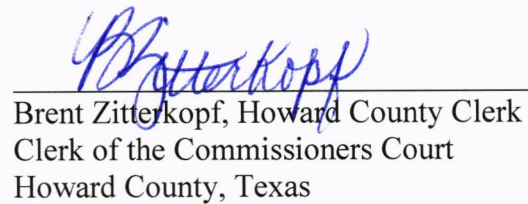 BZitterkopf
Brent Zitterkopf, Howard County Clerk
Clerk of the Commissioners Court
Howard County, Texas